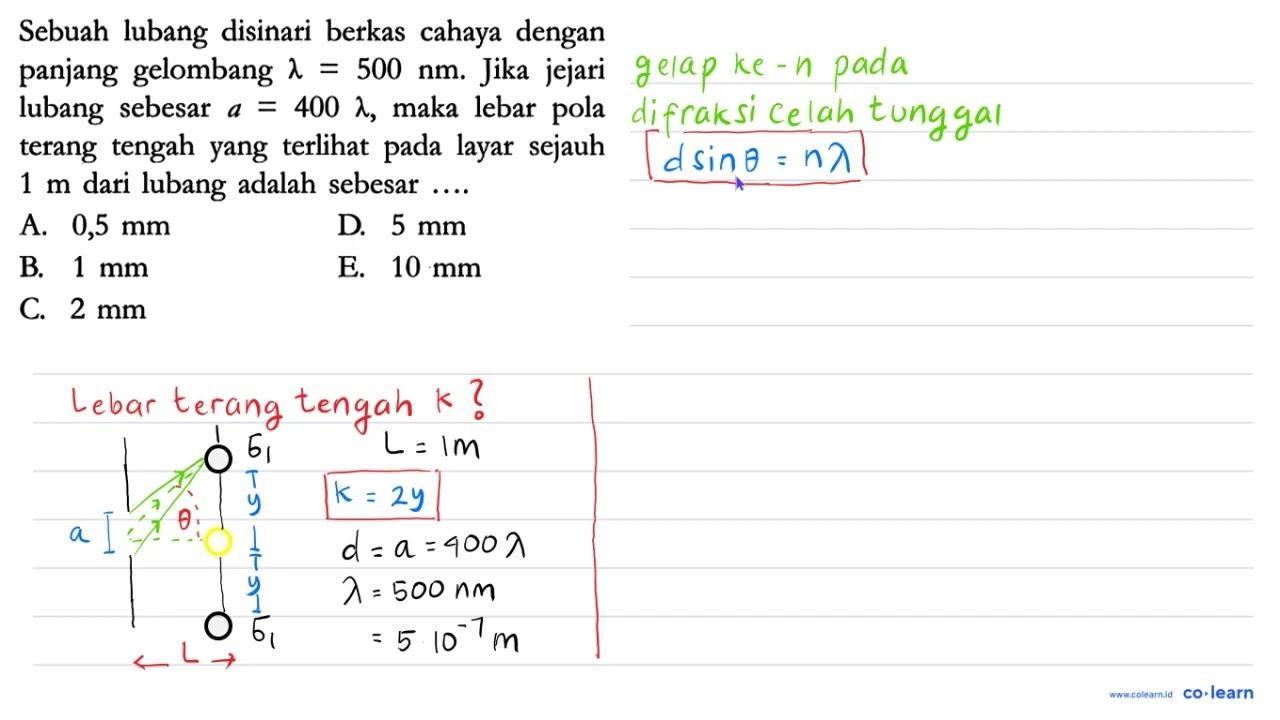 Sebuah lubang disinari berkas cahaya dengan
panjang gelombang λ = 500 nm. Jika jejari
lubang sebesar a = 400 λ, maka lebar pola
terang tengah yang terlihat pada layar sejauh
1 m dari lubang adalah sebesar ....
A. 0,5 mm D. 5 mm
B. 1 mm E. 10 mm
C. 2 mm
gelap ke-n pada
difraksi celah tunggal
d sin θ = nλ
Lebar terang tengah k?
G₁
L = 1m
y
k = 2y
a
θ
d = a = 400 λ
y
λ = 500 nm
G₁
= 5 10⁻⁷ m
L
www.colearn.id co·learn